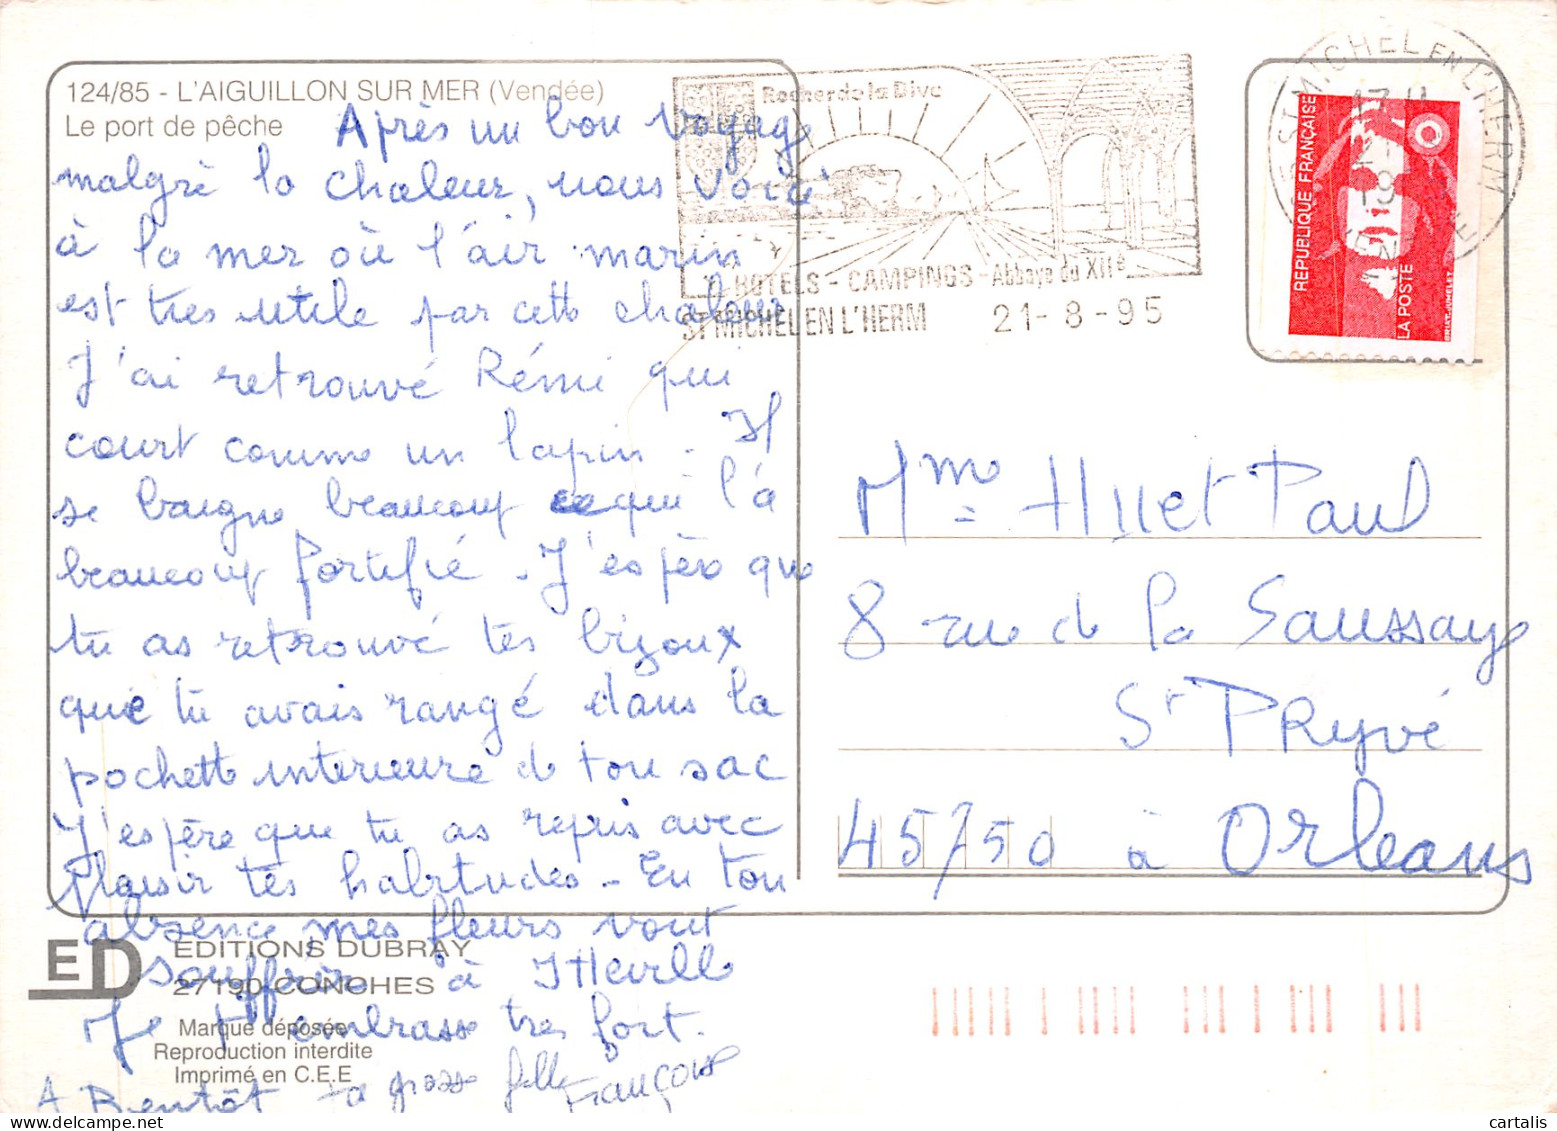 124/85 - L'AIGUILLON SUR MER (Vendée)
Le port de pêche
Après un bon voyage
malgré la chaleur, nous voici
à la mer où l'air marin
est très utile par cette chaleur
J'ai retrouvé Rémi qui
court comme un lapin. Il
se baigne beaucoup ce qui l'a
beaucoup fortifié. J'espère que
tu as retrouvé tes bijoux
que tu avais rangé dans la
pochette interieure de ton sac
J'espère que tu as repris avec
plaisir tes habitudes - En ton
absence mes fleurs vont
souffrir à
Je t'embrasse très fort.
A Bientôt ta grosse fille
Françoise
Rocher de la Dive
HOTELS - CAMPINGS - Abbaye du XIIe
ST MICHEL EN L'HERM 21-8-95
ST MICHEL EN L'HERM
REPUBLIQUE FRANÇAISE
LA POSTE
Mme Huet Paul
8 rue de la Saussaye
St PRyvé
45750 à Orleans
ED
EDITIONS DUBRAY
27190 CONCHES
Marque déposée
Reproduction interdite
Imprimé en C.E.E
cartalis